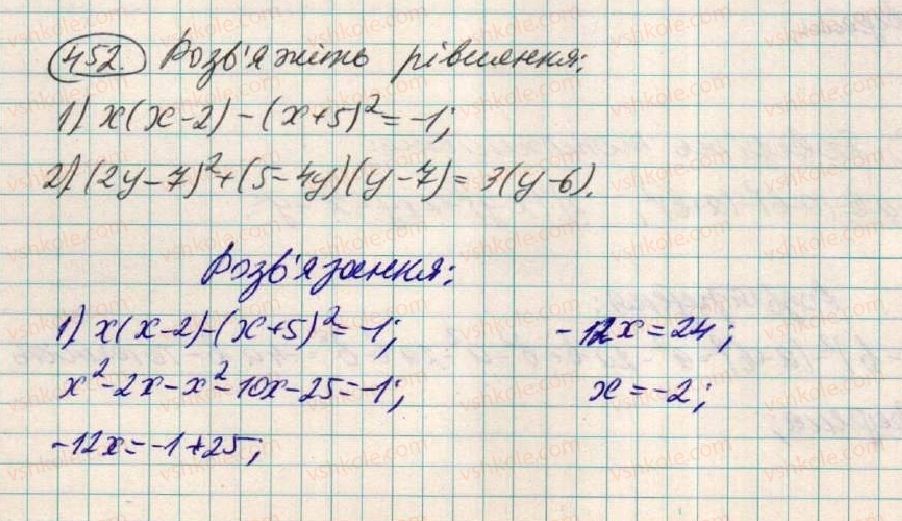 452. Розв'яжіть рівняння:
1) x(x-2)-(x+5)²=-1;
2) (2y-7)²+(5-4y)(y-7)=3(y-6).
Розв'язання:
1) x(x-2)-(x+5)²=-1;
x²-2x-x²-10x-25=-1;
-12x=-1+25;
-12x=24;
x=-2;